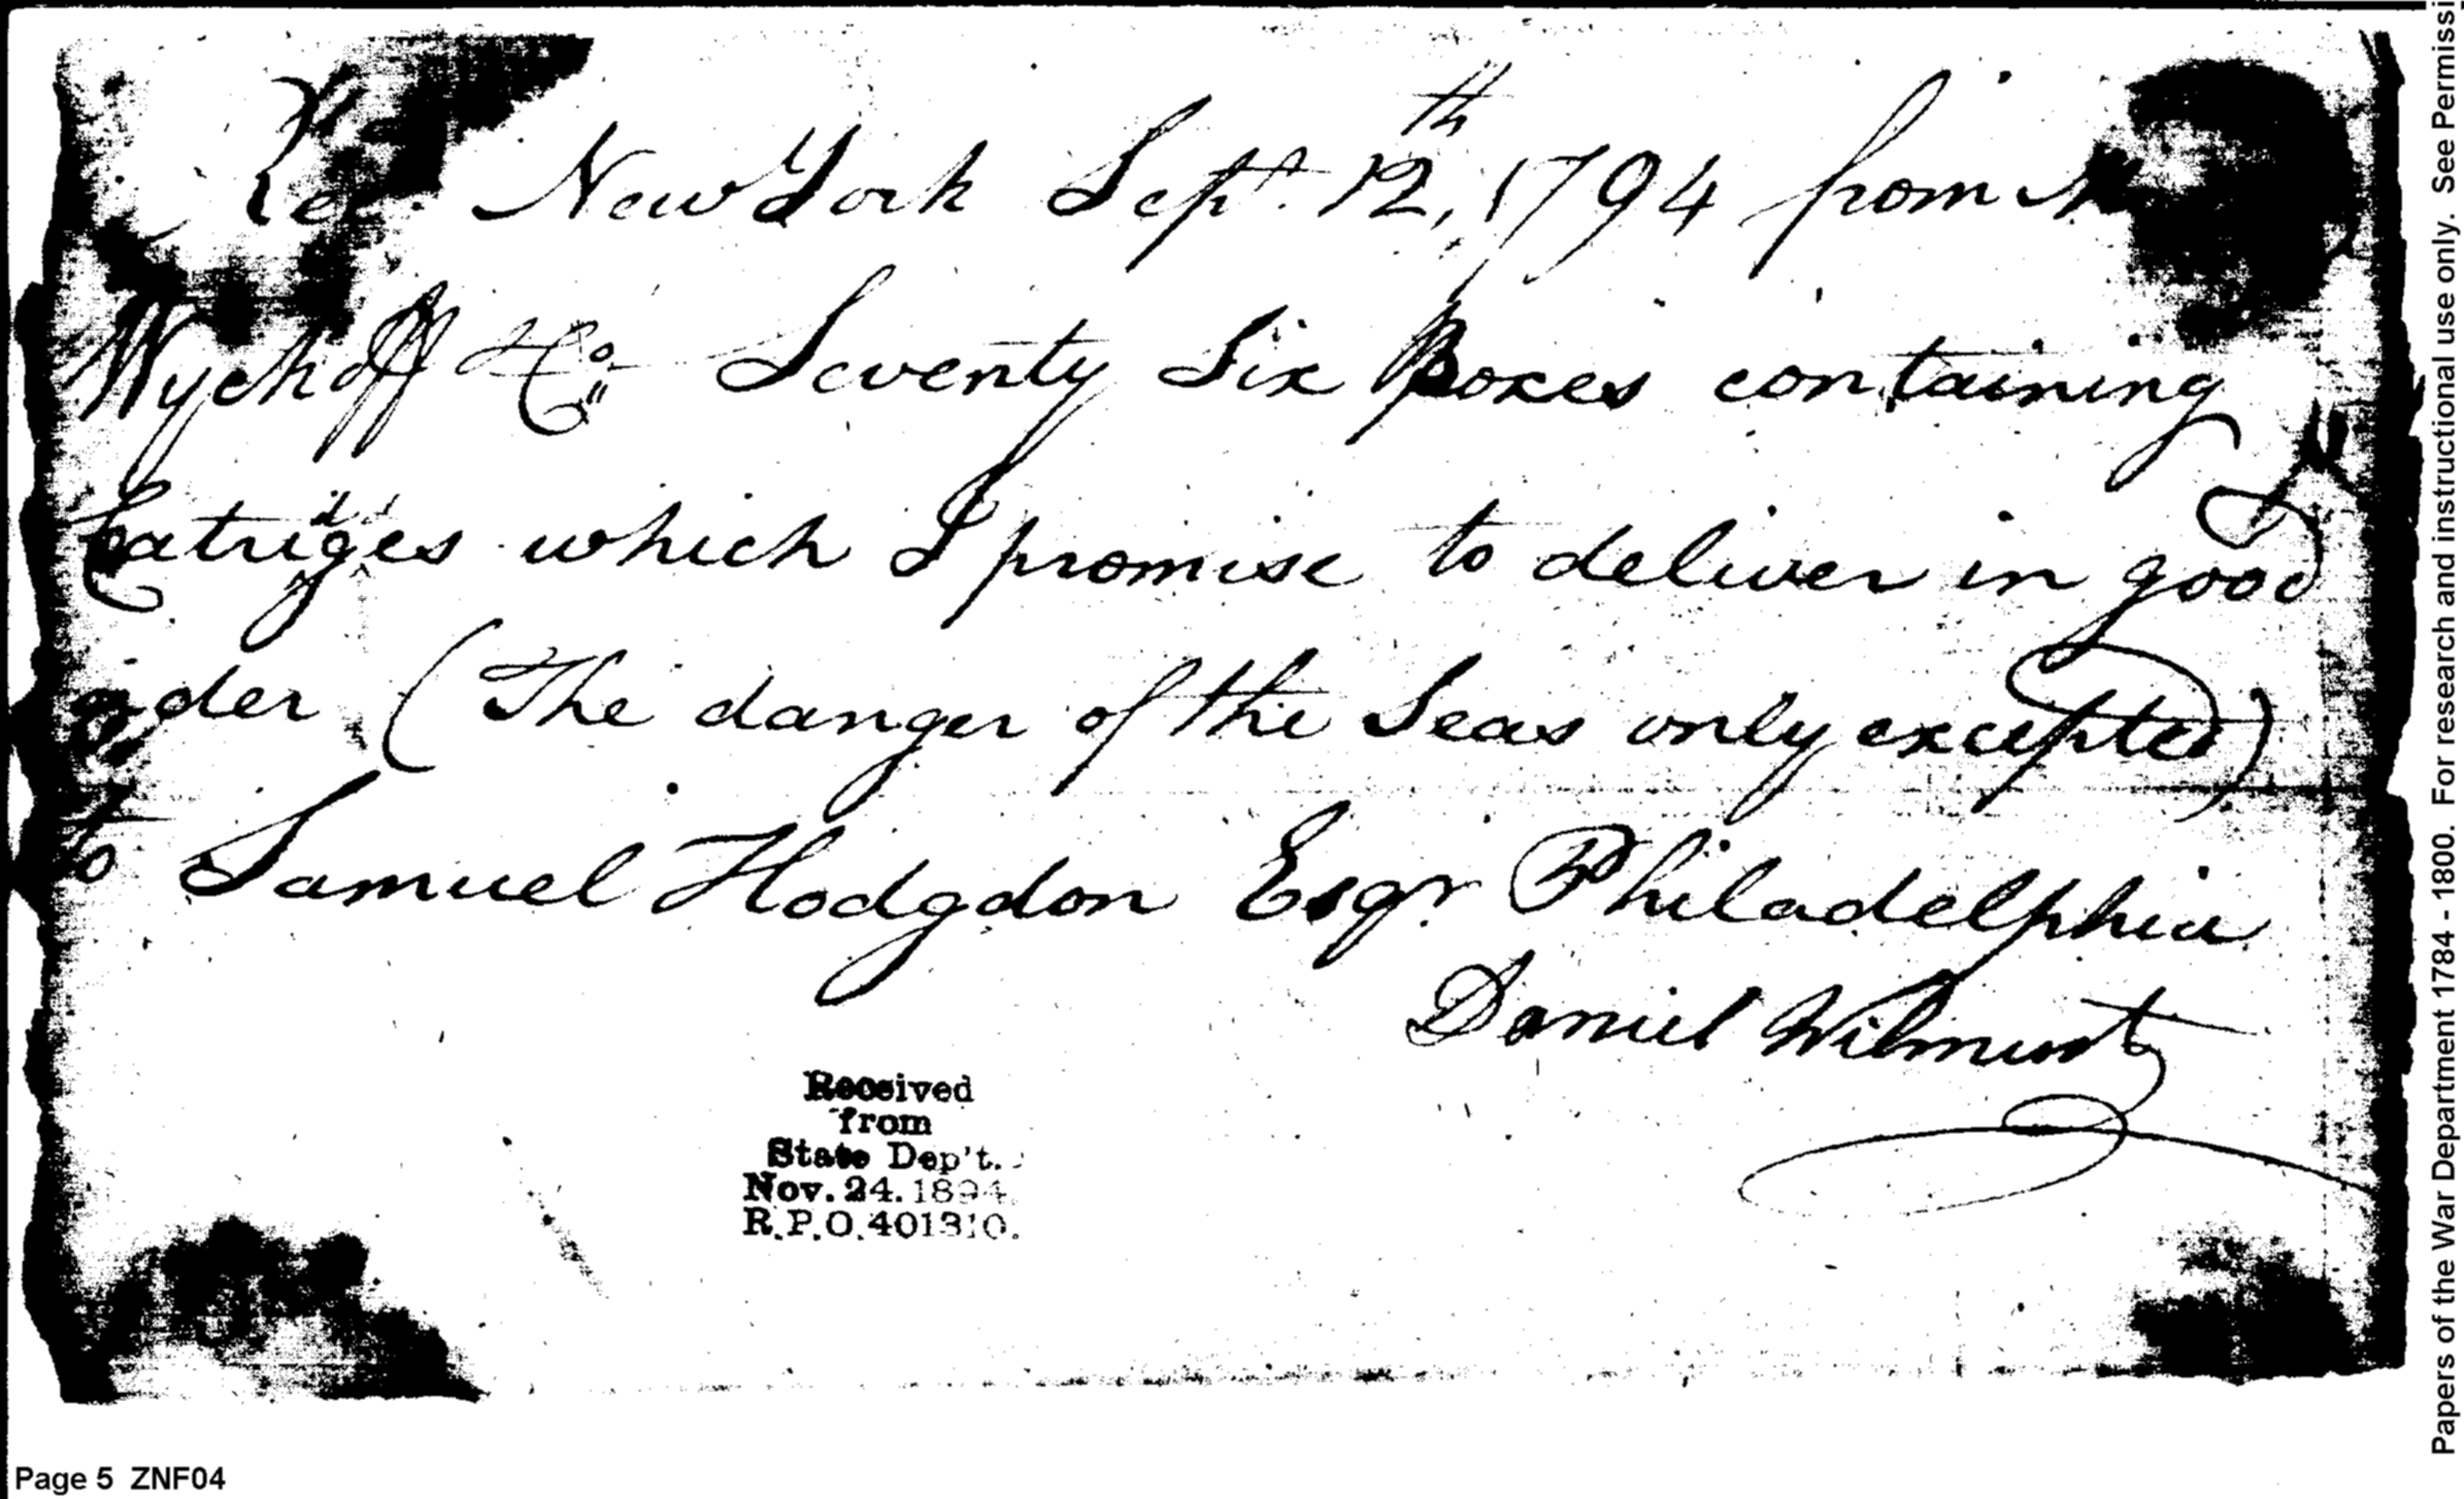 Rec. New York Sept. 12th, 1794 from
Wyckoff & Co Seventy Six Boxes containing
Catridges which I promise to deliver in good
order (The danger of the Seas only excepted)
to Samuel Hodgdon Esqr Philadelphia
Daniel Wilmurt
Received
from
State Dep't.
Nov. 24. 1894
R.P.O. 401310.
Page 5 ZNF04
Papers of the War Department 1784 - 1800. For research and instructional use only. See Permissi